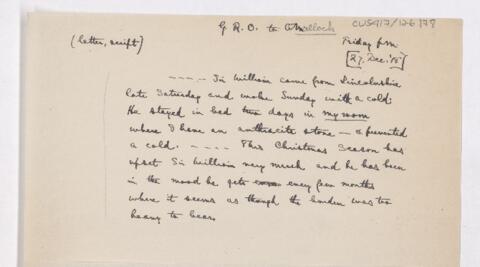 G R O to CMalloch
CUS417/126 178
(letter, script)
Friday pm
[27. Dec. '18]
----. Sir William came from Lincolnshire
late Saturday and woke Sunday with a cold.
He stayed in bed two days in my room
where I have an anthracite stove — & prevented
a cold. ---- This Christmas season has
upset Sir William very much and he has been
in the mood he gets every few months
where it seems as though the burden was too
heavy to bear.